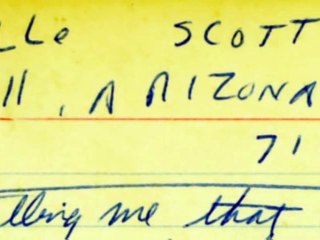 LLe SCOTT
ll, ARIZONA
71
lling me that